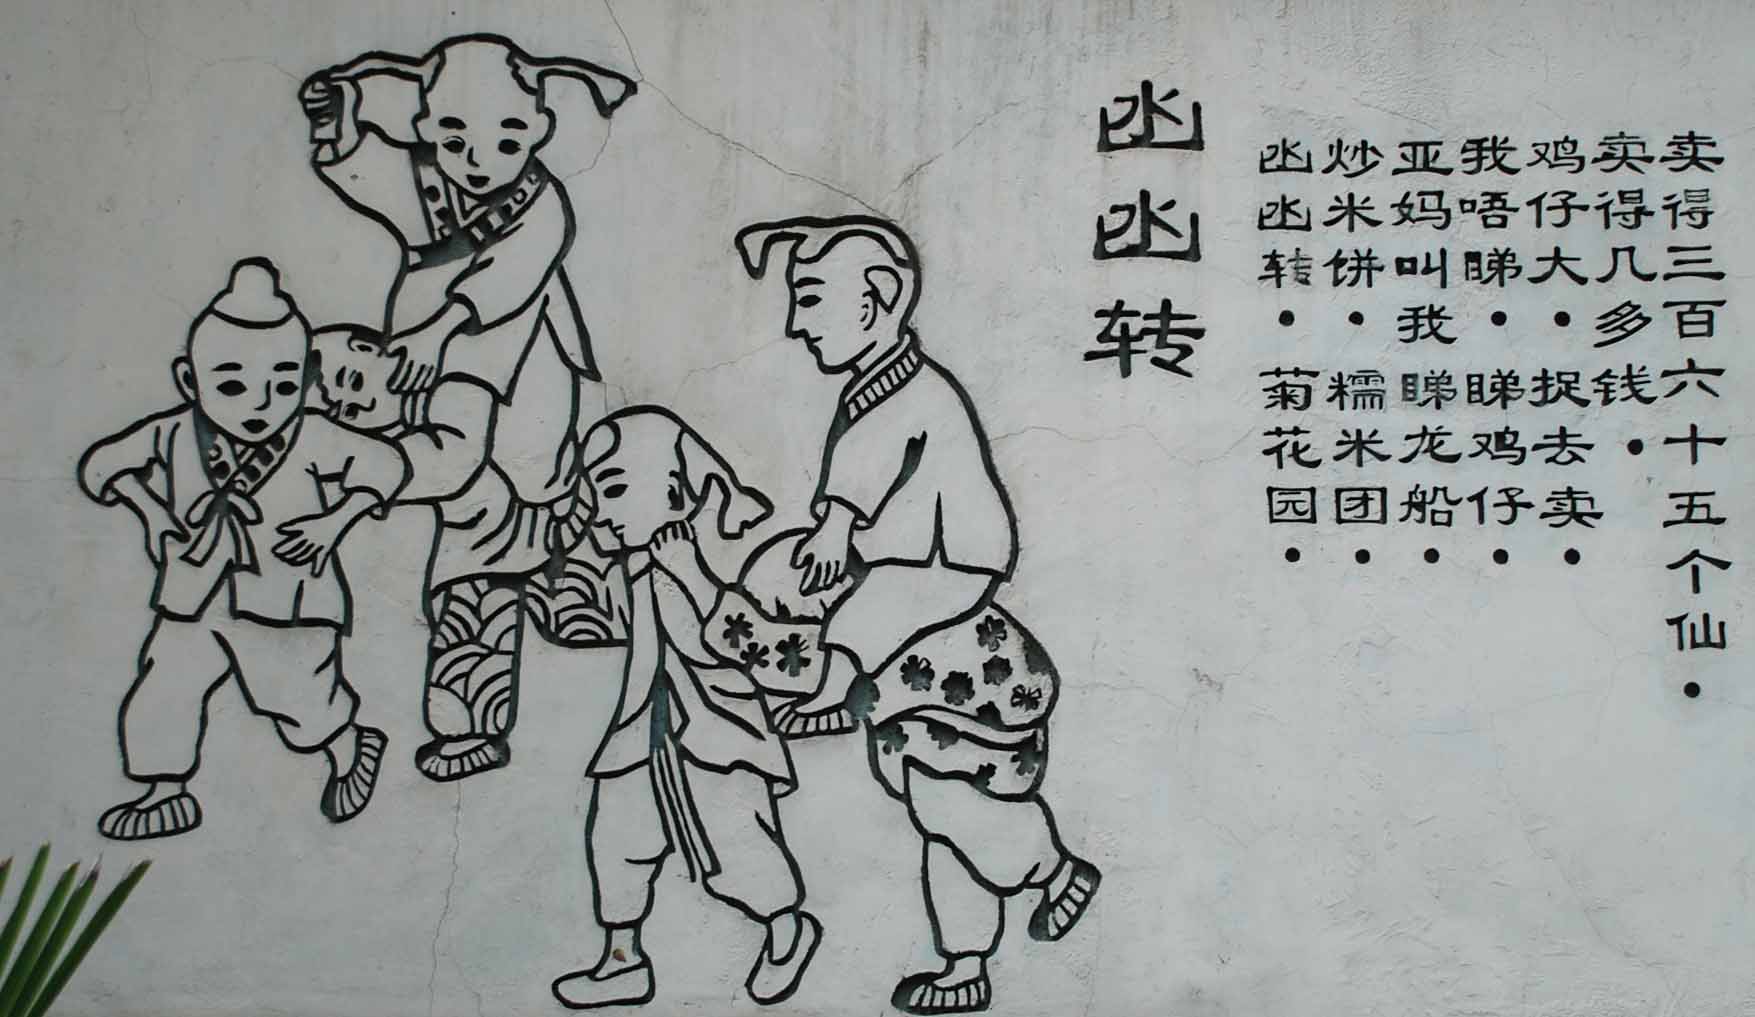 凼凼转
凼凼转•菊花园•
炒米饼•糯米团•
亚妈叫我睇龙船•
我唔睇•睇鸡仔•
鸡仔大•捉去卖•
卖得几多钱•
卖得三百六十五个仙•